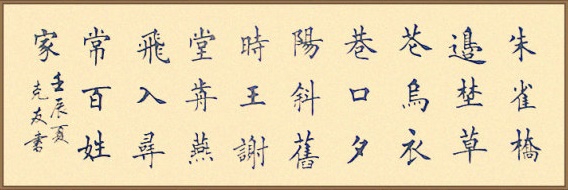 朱雀橋
邉埜草
花烏衣
巷口夕
陽斜舊
時王謝
堂歬燕
飛入尋
常百姓
家
壬辰夏
克友書